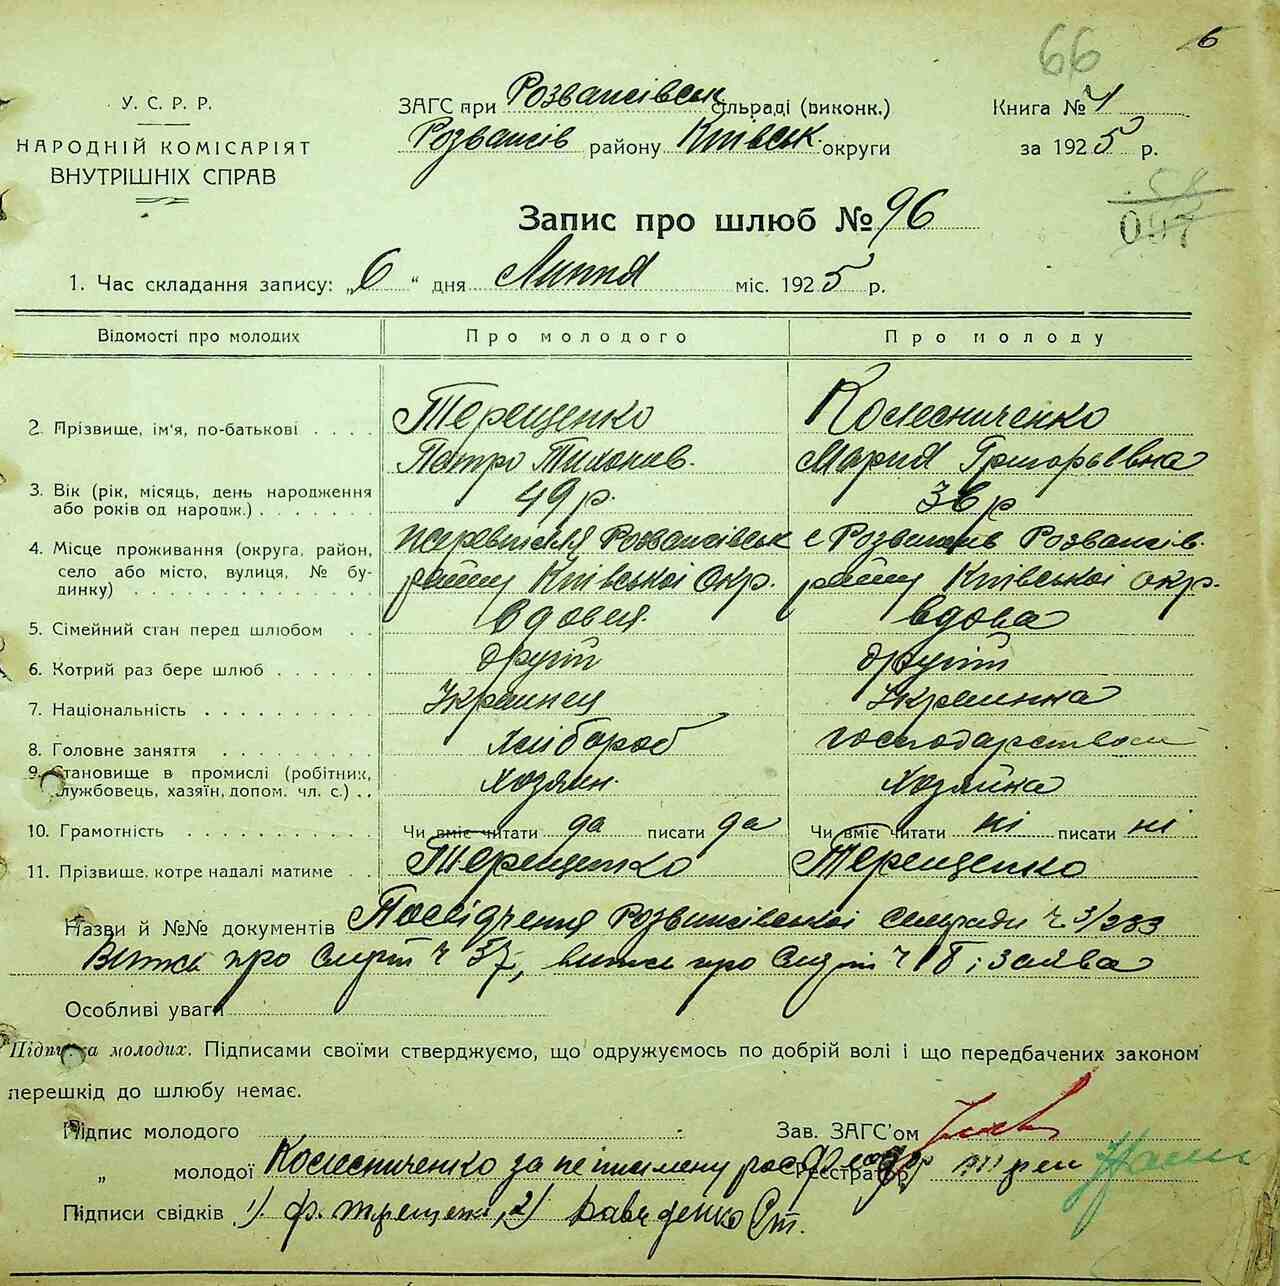 66
6
У. С. Р. Р.
НАРОДНІЙ КОМІСАРІЯТ
ВНУТРІШНІХ СПРАВ
ЗАГС при Розважівськ сільраді (виконк.)
Розважів району Київськ округи
Книга № 4
за 1925 р.
Запис про шлюб № 96
097
1. Час складання запису: „6“ дня Лютня міс. 1925 р.
Відомості про молодих
Про молодого
Про молоду
2. Прізвище, ім'я, по-батькові
Терещенко
Петро Тихонів.
Колесниченко
Мария Григорьівна
3. Вік (рік, місяць, день народження
або років од народж.)
49 р.
36 р
4. Місце проживання (округа, район,
село або місто, вулиця, № бу-
динку)
Розважівськ
району Київської Окр.
с Розважів Розважів.
району Київської окр.
5. Сімейний стан перед шлюбом
вдовец
вдова
6. Котрий раз бере шлюб
другий
другий
7. Національність
Украинец
Украинка
8. Головне заняття
хлібороб
9. Становище в промислі (робітник,
службовець, хазяїн, допом. чл. с.)
хозяин.
хозяйка
10. Грамотність
Чи вміє читати да писати да
Чи вміє читати ні писати ні
11. Прізвище, котре надалі матиме
Терещенко
Терещенко
Назви й №№ документів Посвідчення Розважівської сельради ч. 3/233
про Смерть ч 57, про Смерть ч і заява
Особливі уваги
Підписка молодих. Підписами своїми стверджуємо, що одружуємось по добрій волі і що передбачених законом
перешкід до шлюбу немає.
Підпис молодого
Зав. ЗАГС'ом
„ молодої Колесниченко за неписмену
Реєстратор
Підписи свідків 1) 2)